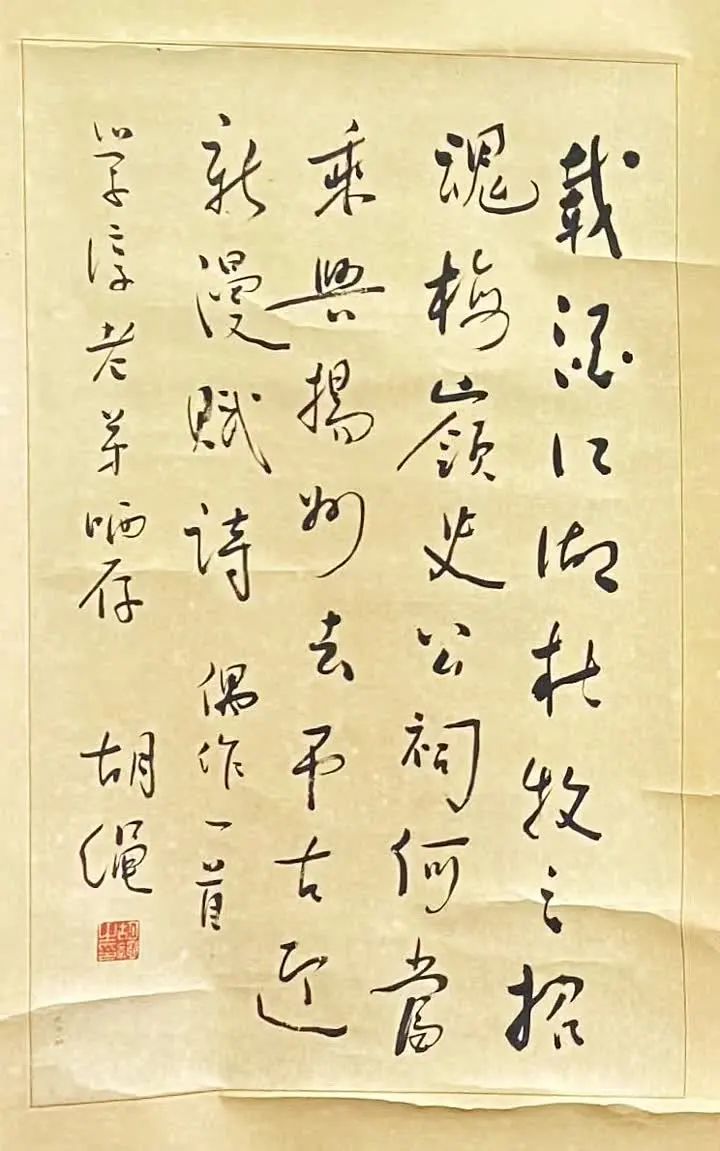 載酒江湖杜牧之招
魂梅嶺史公祠何當
乘興揚州去吊古迎
新漫賦詩 偶作一首
学淳老弟哂存 胡绳